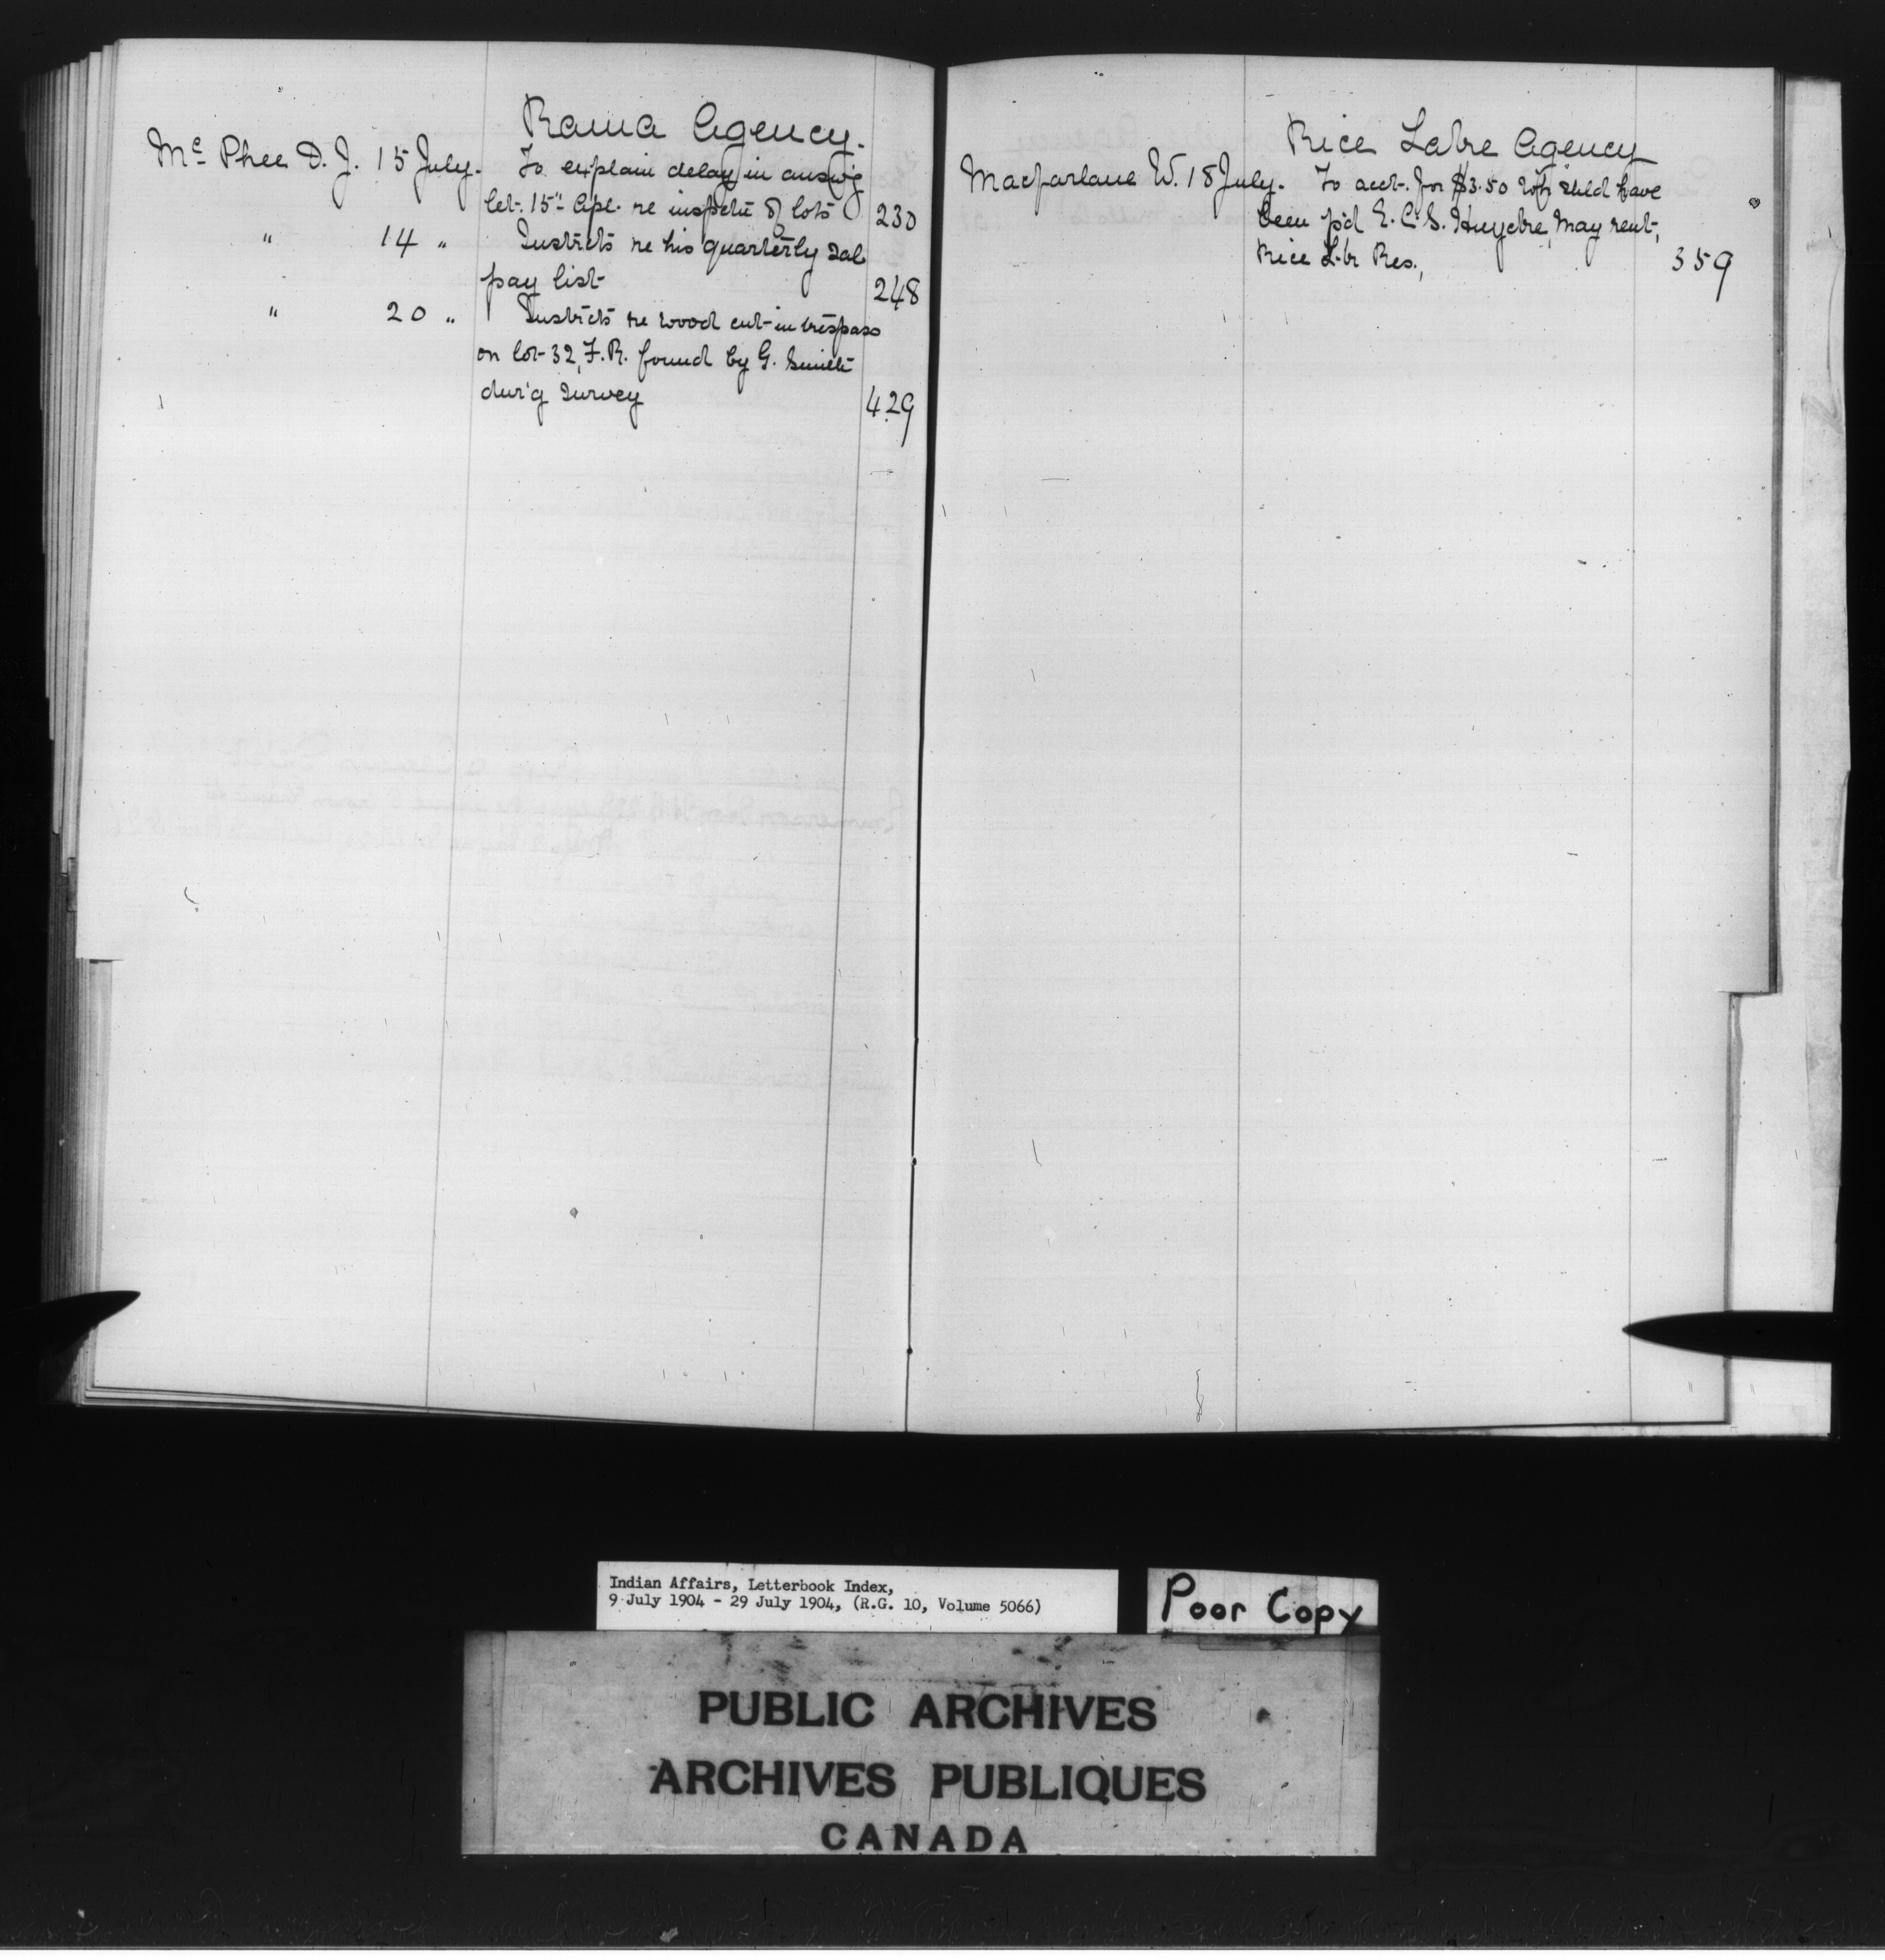 Rama Agency.
Mc Phee D. J. 15 July. To explain delay in answ'g
let. 15" Apl. re inspectn of lots 230
" 14 " Instrcts re his quarterly sal
pay list 248
" 20 " Instrcts re wood cut in trespass
on lot 32, F.R. found by G. Smith
dur'g survey 429
Rice Lake Agency
Macfarlane W. 18 July. To acct. for $3.50 wh shld have
been p'd E. C. S. Huycke, May rent,
Rice Lk Res., 359
Indian Affairs, Letterbook Index,
9 July 1904 - 29 July 1904, (R.G. 10, Volume 5066)
Poor Copy
PUBLIC ARCHIVES
ARCHIVES PUBLIQUES
CANADA